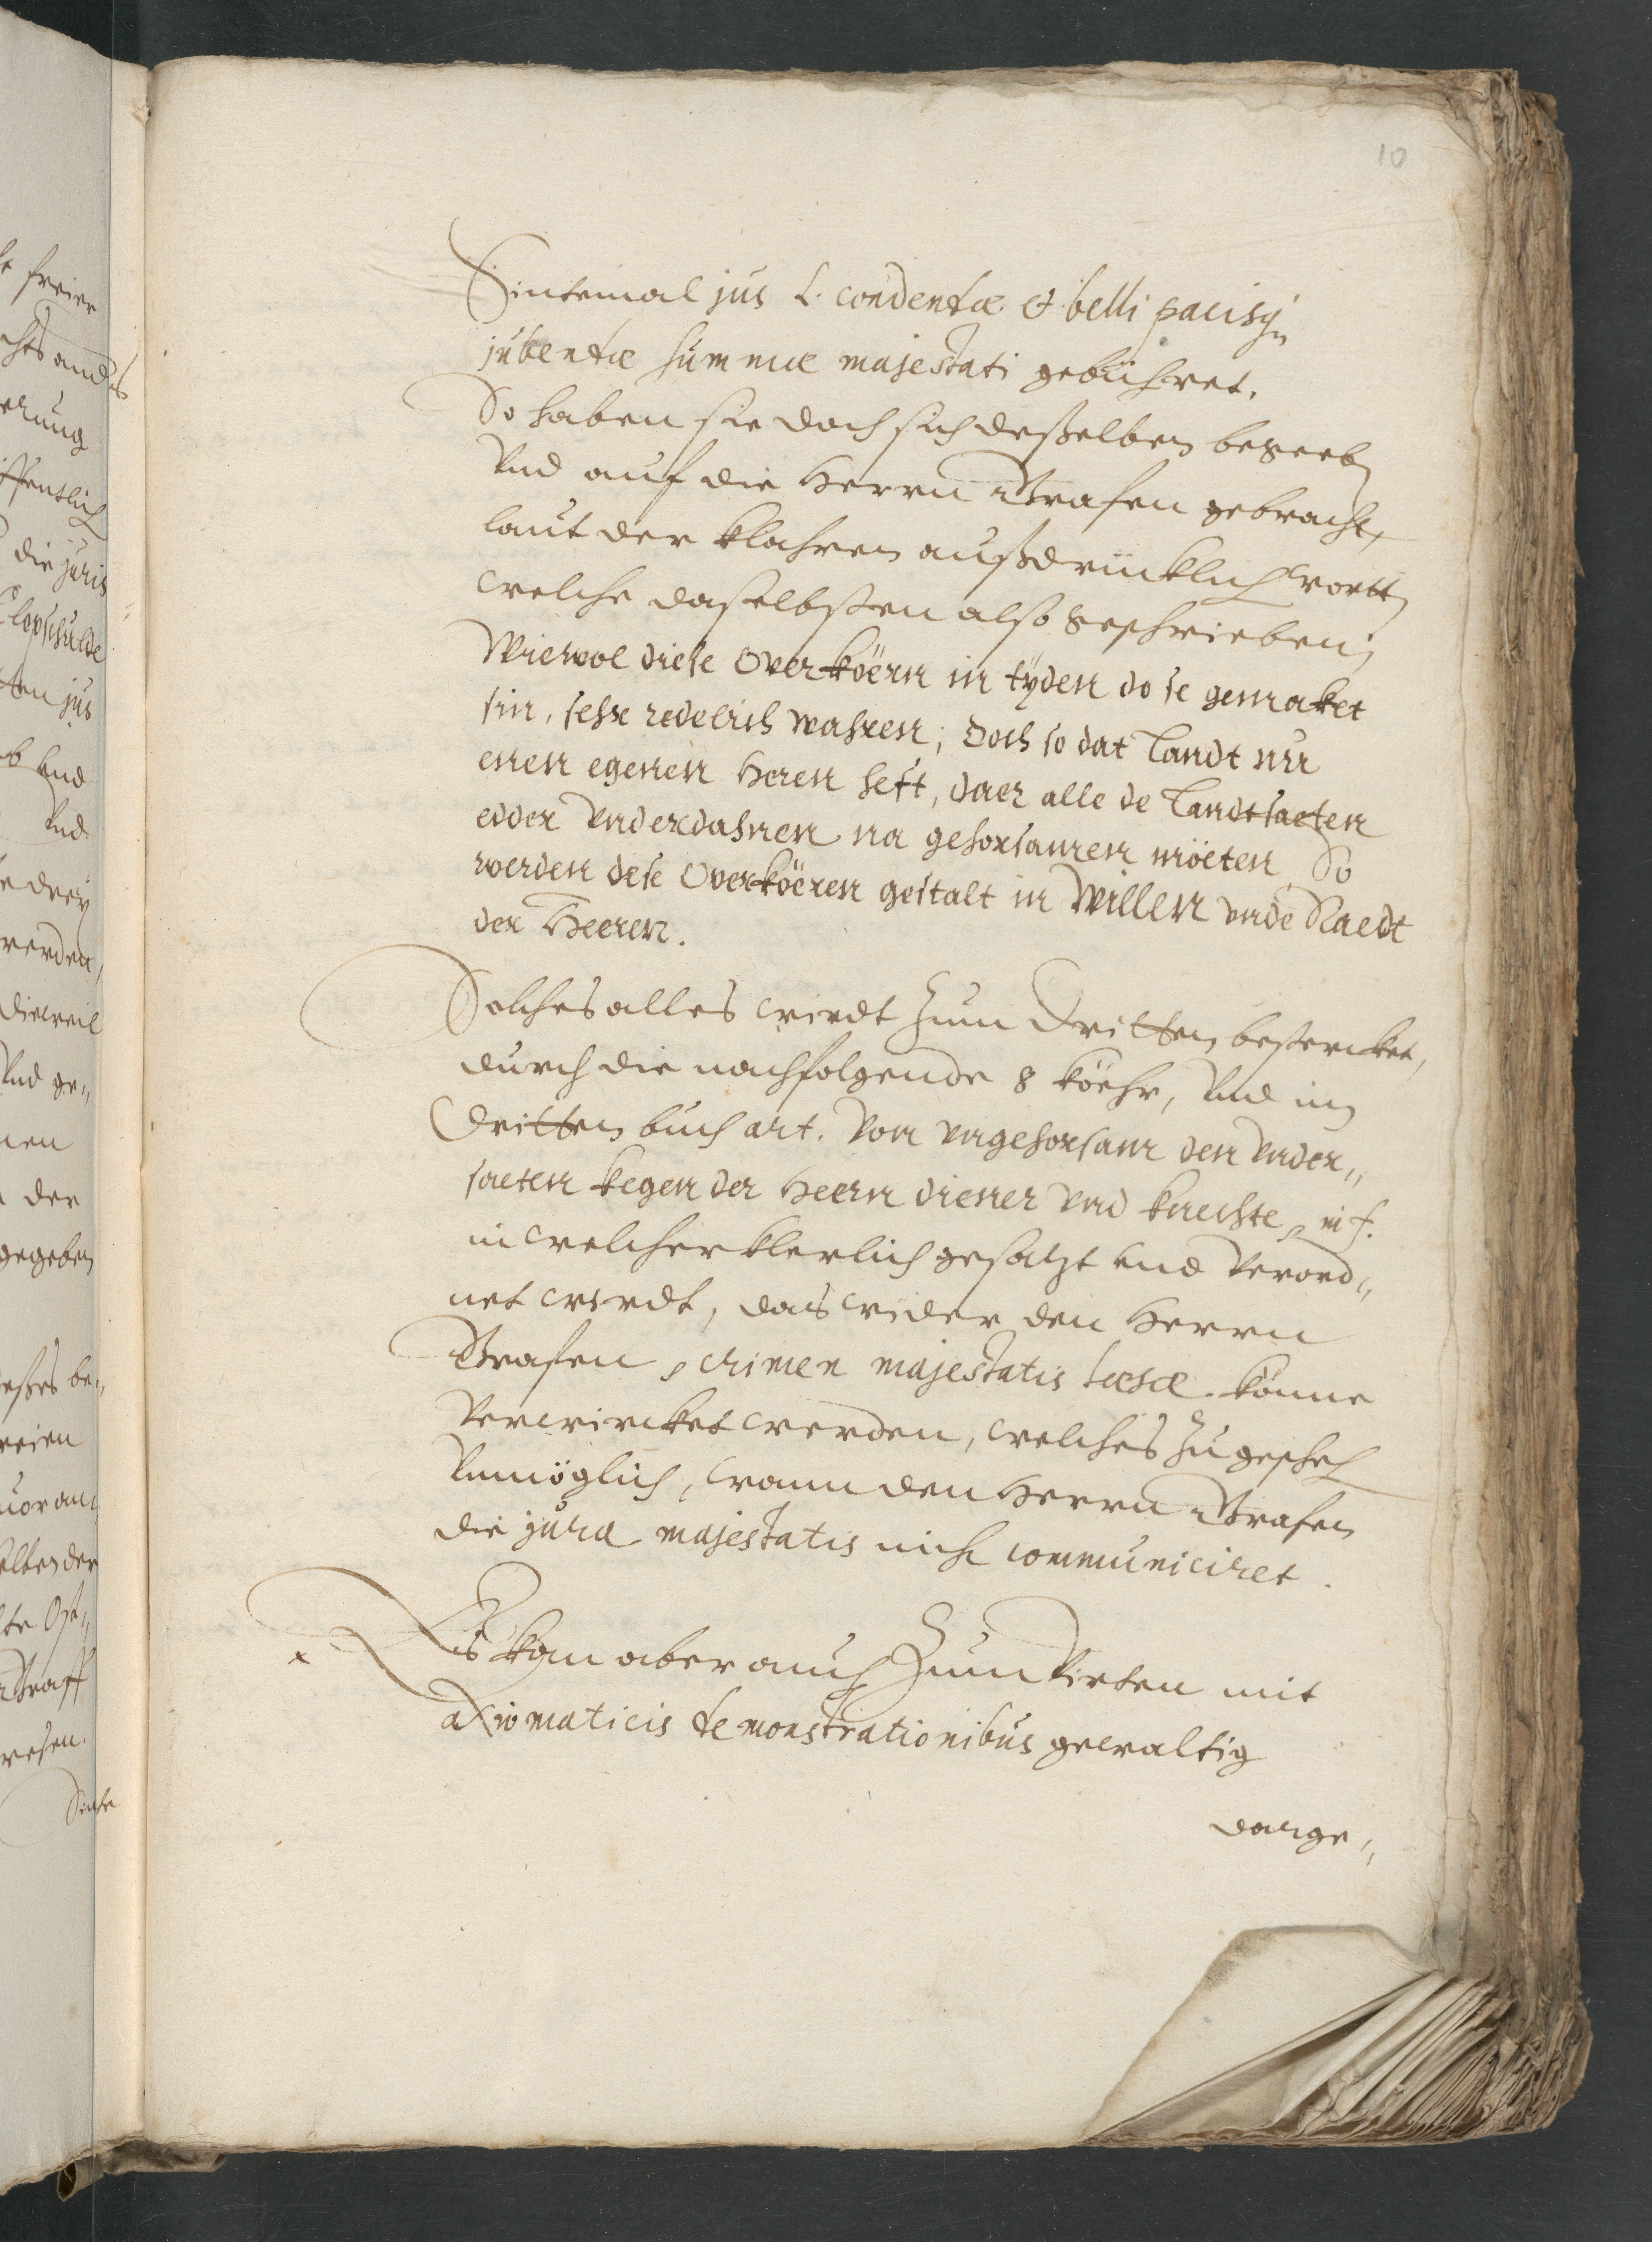 10
Sintemal jus L. condendæ et belli pacisq
jubendæ summæ majestati gebühret.
So haben sie doch sich deßelben begeben
Vnd auf die Herrn Grafen gebracht,
laut der klahren außdrücklich wortt
welche daselbsten also geschrieben;
Wiewol diese Overköern in tyden do se gemaket
sin, sehr redelich wahren; Doch so dat Landt nu
enen egenen Heren heft, daer alle de Landtsaeten
edder Vnderdahnen na gehorsamen möeten So
werden dese Overköeren gestalt in Willen vnde Raedt
der Heeren.
Solches alles wirdt zum Dritten bestercket,
durch die nachfolgende 8 köehr, Vnd im
Dritten buch art. Von vngehorsam den Vnder„
saeten kegen der Heern diener vnd knechte, in f.
in welcher klerlich gesatzt vnd Verord„
net wirdt, das wider den Herrn
Grafen, crimen majestatis læsæ könne
Verwircket werden, welches zu gescheh
Vnmöglich, wann den Herrn Grafen
die jura majestatis nicht communiciret.
Es kan aber auch Zum Virten mit
axiomaticis demonstrationibus gewaltig
darge„